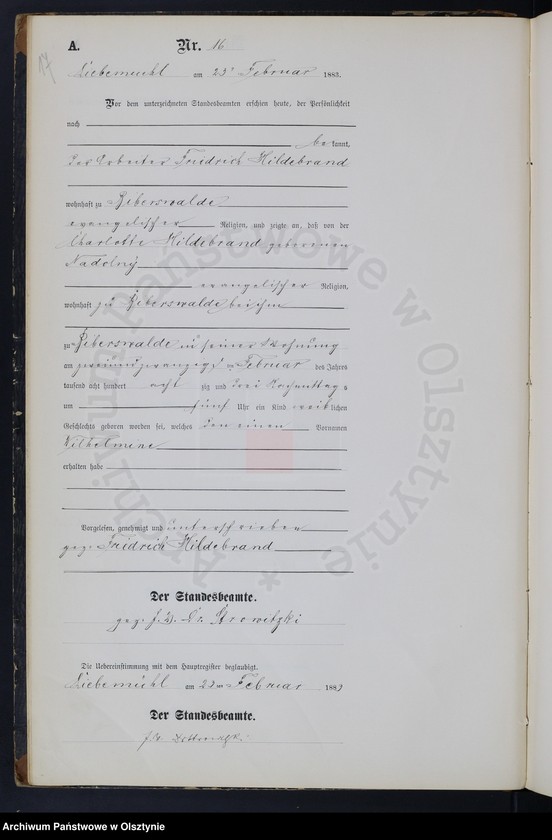 17
A. Nr. 16
Liebemuehl am 23 Februar 1883.
Vor dem unterzeichneten Standesbeamten erschien heute, der Persönlichkeit
nach
be kannt,
der Arbeiter Fridrich Hildebrand
wohnhaft zu Biberswalde
evangelischer Religion, und zeigte an, daß von der
Charlotte Hildebrand geborenen
Nadolny
evangelischer Religion,
wohnhaft zu Biberswalde bei ihm
zu Biberswalde in seiner Wohnung
am zweiundzwanzigs Februar des Jahres
tausend acht hundert acht zig und drei Nachmittags
um fünf Uhr ein Kind weib lichen
Geschlechts geboren worden sei, welches den einen Vornamen
Wilhelmine
erhalten habe
Vorgelesen, genehmigt und unterschrieben
gez. Fridrich Hildebrand
Der Standesbeamte.
gez. J.V.
Die Uebereinstimmung mit dem Hauptregister beglaubigt.
Liebemühl am 23 Februar 1883
Der Standesbeamte.
Archiwum Państwowe w Olsztynie *
Archiwum Państwowe w Olsztynie